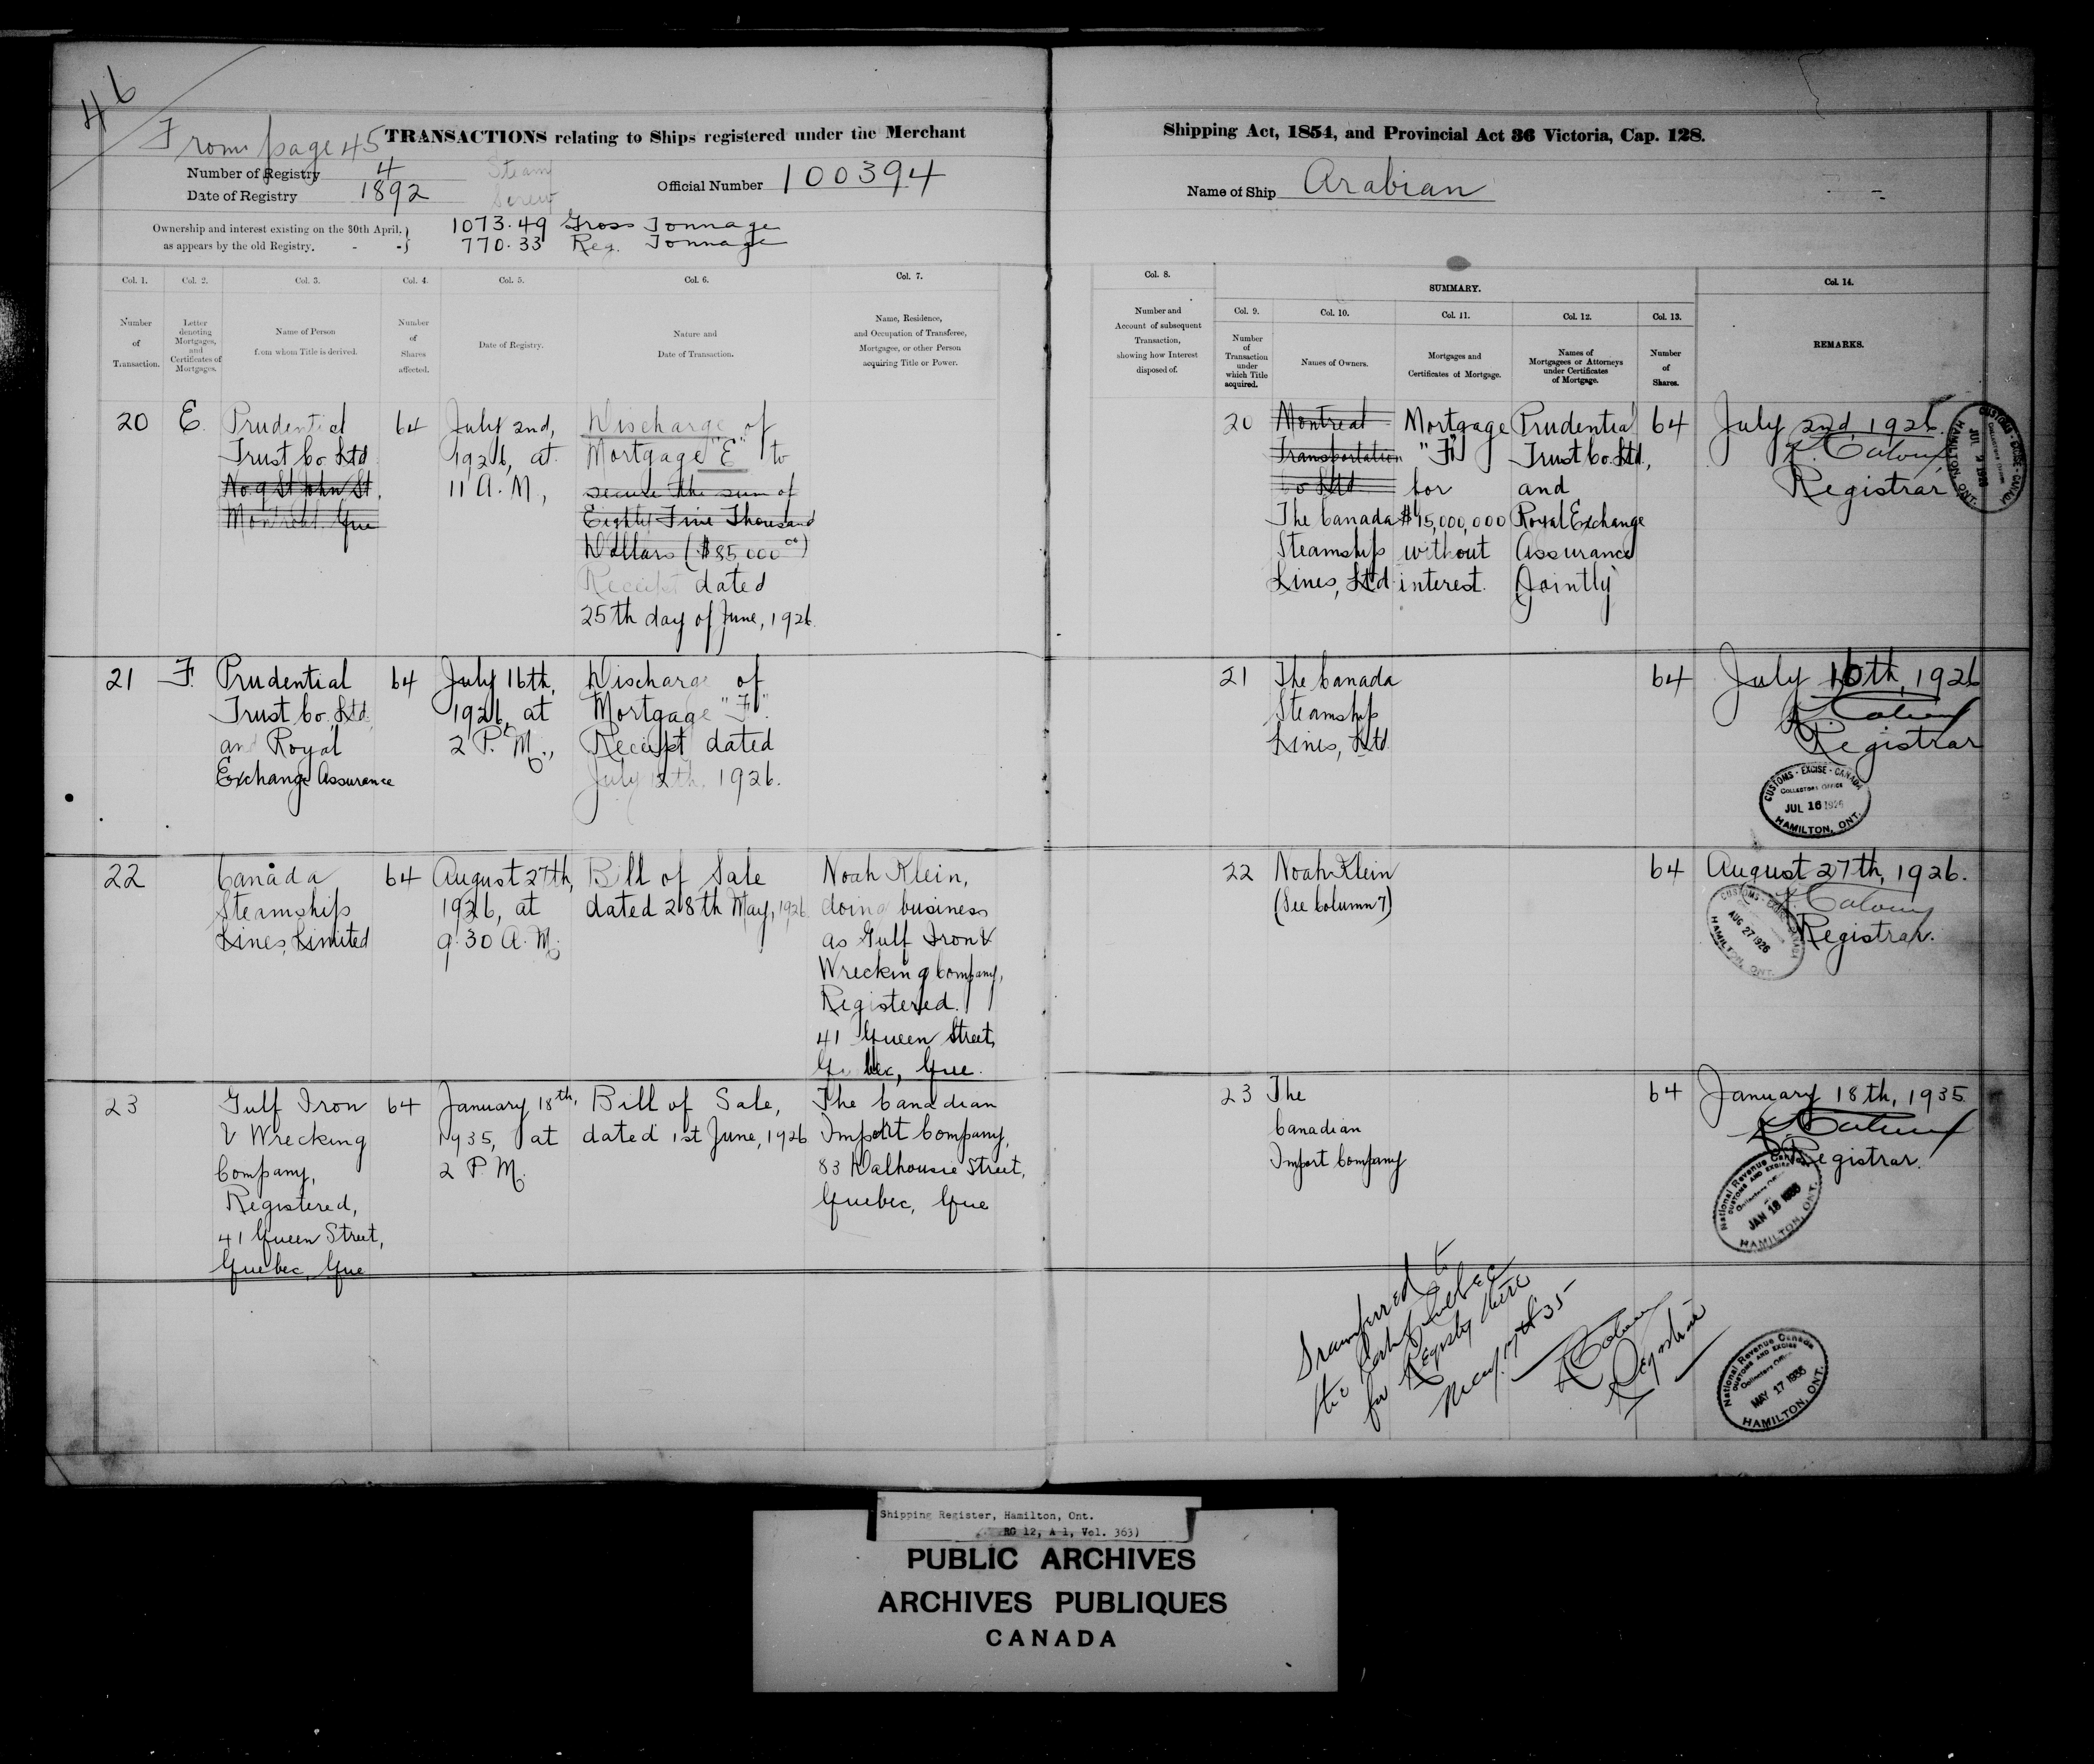 46
From page 45
TRANSACTIONS relating to Ships registered under the Merchant
Shipping Act, 1854, and Provincial Act 36 Victoria, Cap. 128.
Number of Registry 4
Steam
Screw
Date of Registry 1892
Official Number 100394
Name of Ship Arabian
Ownership and interest existing on the 30th April,
as appears by the old Registry. - -
1073.49 Gross Tonnage
770.33 Reg. Tonnage
Col. 1.
Number
of
Transaction.
Col. 2.
Letter
denoting
Mortgages,
and
Certificates of
Mortgages.
Col. 3.
Name of Person
from whom Title is derived.
Col. 4.
Number
of
Shares
affected.
Col. 5.
Date of Registry.
Col. 6.
Nature and
Date of Transaction.
Col. 7.
Name, Residence,
and Occupation of Transferee,
Mortgagee, or other Person
acquiring Title or Power.
Col. 8.
Number and
Account of subsequent
Transaction,
showing how Interest
disposed of.
SUMMARY.
Col. 9.
Number
of
Transaction
under
which Title
acquired.
Col. 10.
Names of Owners.
Col. 11.
Mortgages and
Certificates of Mortgage.
Col. 12.
Names of
Mortgagees or Attorneys
under Certificates
of Mortgage.
Col. 13.
Number
of
Shares.
Col. 14.
REMARKS.
20
E.
Prudential
Trust Co. Ltd
No. 9 St John St.
Montreal Que
64
July 2nd,
1926, at
11 A. M.,
Discharge of
Mortgage "E" to
secure the sum of
Eighty Five Thousand
Dollars ($85,000 00)
Receipt dated
25th day of June, 1926.
20
Montreal
Transportation
Co Ltd
The Canada
Steamship
Lines, Ltd
Mortgage
"F"
for
$15,000,000
without
interest.
Prudential
Trust Co. Ltd.,
and
Royal Exchange
Assurance
Jointly
64
July 2nd, 1926.
Registrar
CUSTOMS - EXCISE - CANADA
COLLECTORS OFFICE
JUL 2 1926
HAMILTON, ONT.
21
F.
Prudential
Trust Co. Ltd.
and Royal
Exchange Assurance
64
July 16th,
1926, at
2 P. M.,
Discharge of
Mortgage "F".
Receipt dated
July 12th. 1926.
21
The Canada
Steamship
Lines, Ltd
64
July 16th, 1926
Registrar
CUSTOMS - EXCISE - CANADA
COLLECTORS OFFICE
JUL 16 1926
HAMILTON, ONT.
22
Canada
Steamships
Lines, Limited
64
August 27th,
1926, at
9.30 A. M.
Bill of Sale
dated 28th May, 1926.
Noah Klein,
doing business
as Gulf Iron &
Wrecking Company,
Registered.
41 Queen Street,
Quebec, Que.
22
Noah Klein
(See Column 7)
64
August 27th, 1926.
Registrar.
CUSTOMS - EXCISE - CANADA
AUG 27 1926
HAMILTON, ONT.
23
Gulf Iron
& Wrecking
Company,
Registered,
41 Queen Street,
Quebec, Que
64
January 18th,
1935, at
2 P. M.
Bill of Sale,
dated 1st June, 1926
The Canadian
Import Company,
83 Dalhousie Street,
Quebec, Que
23
The
Canadian
Import Company
64
January 18th, 1935
Registrar.
National Revenue Canada
CUSTOMS AND EXCISE
Collectors Office
JAN 18 1935
HAMILTON, ONT.
Transferred to
the Port of Quebec
for Registry there
May 17th '35
Registrar
National Revenue Canada
CUSTOMS AND EXCISE
Collectors Office
MAY 17 1935
HAMILTON, ONT.
Shipping Register, Hamilton, Ont.
RG 12, A 1, Vol. 363)
PUBLIC ARCHIVES
ARCHIVES PUBLIQUES
CANADA